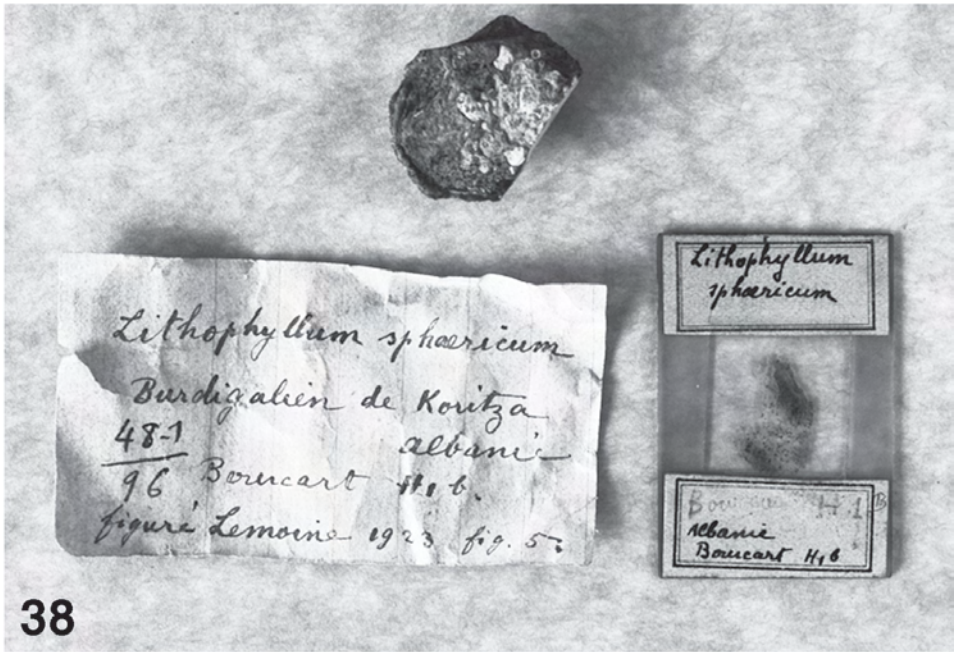 Lithophyllum sphæricum
Burdigalien de Koritza
48-1 albanie
96 Bourcart H1 b.
figuré Lemoine 1923 fig. 5.
Lithophyllum
sphæricum
H.1 B
Albanie
Bourcart H1 b
38